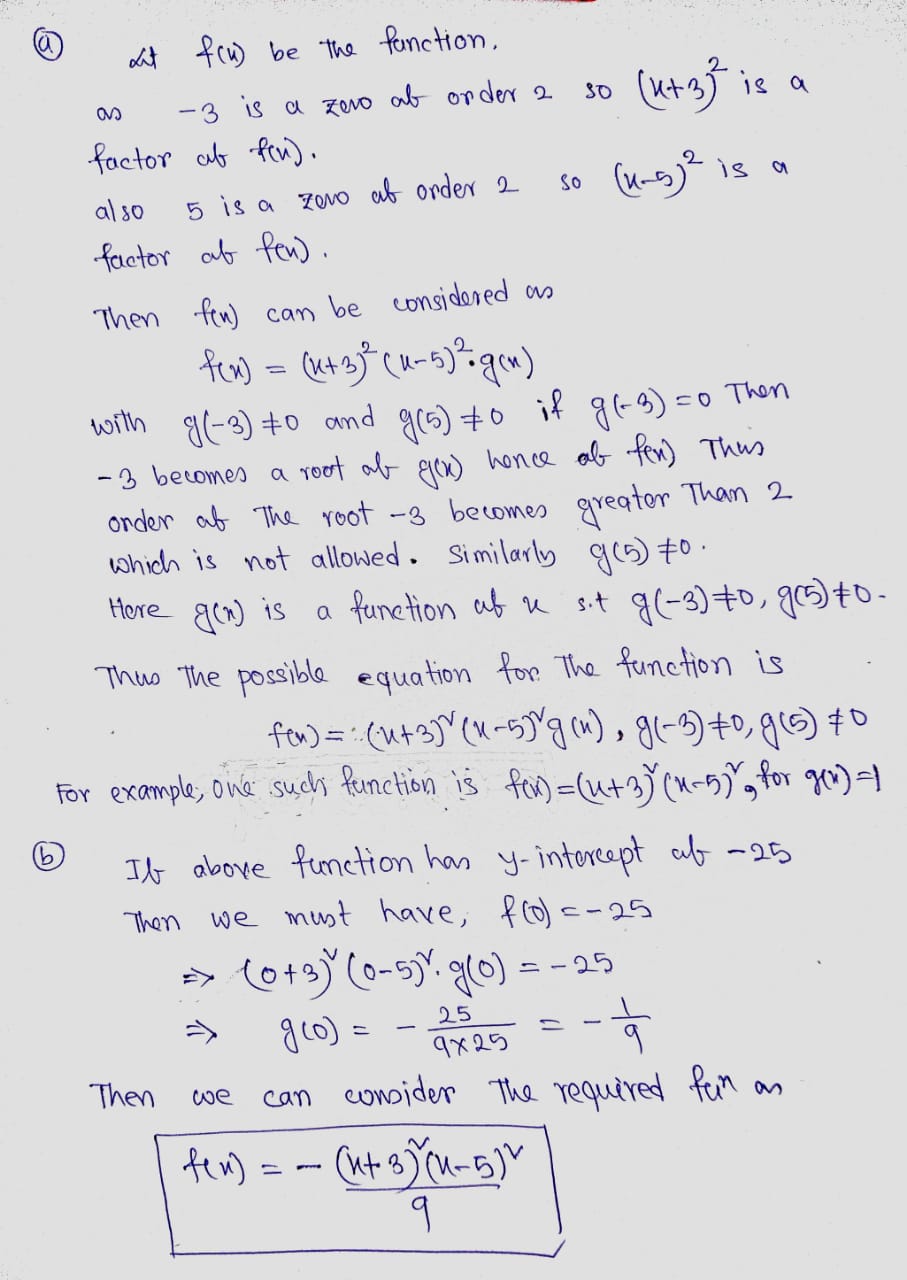 (a) Let f(x) be the function.
as -3 is a zero of order 2 so (x+3)² is a
factor of f(x).
also 5 is a zero of order 2 so (x-5)² is a
factor of f(x).
Then f(x) can be considered as
f(x) = (x+3)² (x-5)².g(x)
with g(-3) ≠0 and g(5) ≠0 if g(-3) =0 Then
-3 becomes a root of g(x) hence of f(x) Thus
order of The root -3 becomes greater Than 2
which is not allowed. Similarly g(5) ≠0.
Here g(x) is a function of x s.t g(-3)≠0, g(5)≠0.
Thus The possible equation for The function is
f(x) = (x+3)²(x-5)²g(x), g(-3)≠0, g(5) ≠0
For example, one such function is f(x)=(x+3)²(x-5)², for g(x)=1
(b) If above function has y-intercept of -25
Then we must have, f(0) = -25
⇒ (0+3)² (0-5)². g(0) = -25
⇒ g(0) = - 25/9×25 = - 1/9
Then we can consider The required fun as
f(x) = - (x+3)²(x-5)²/9